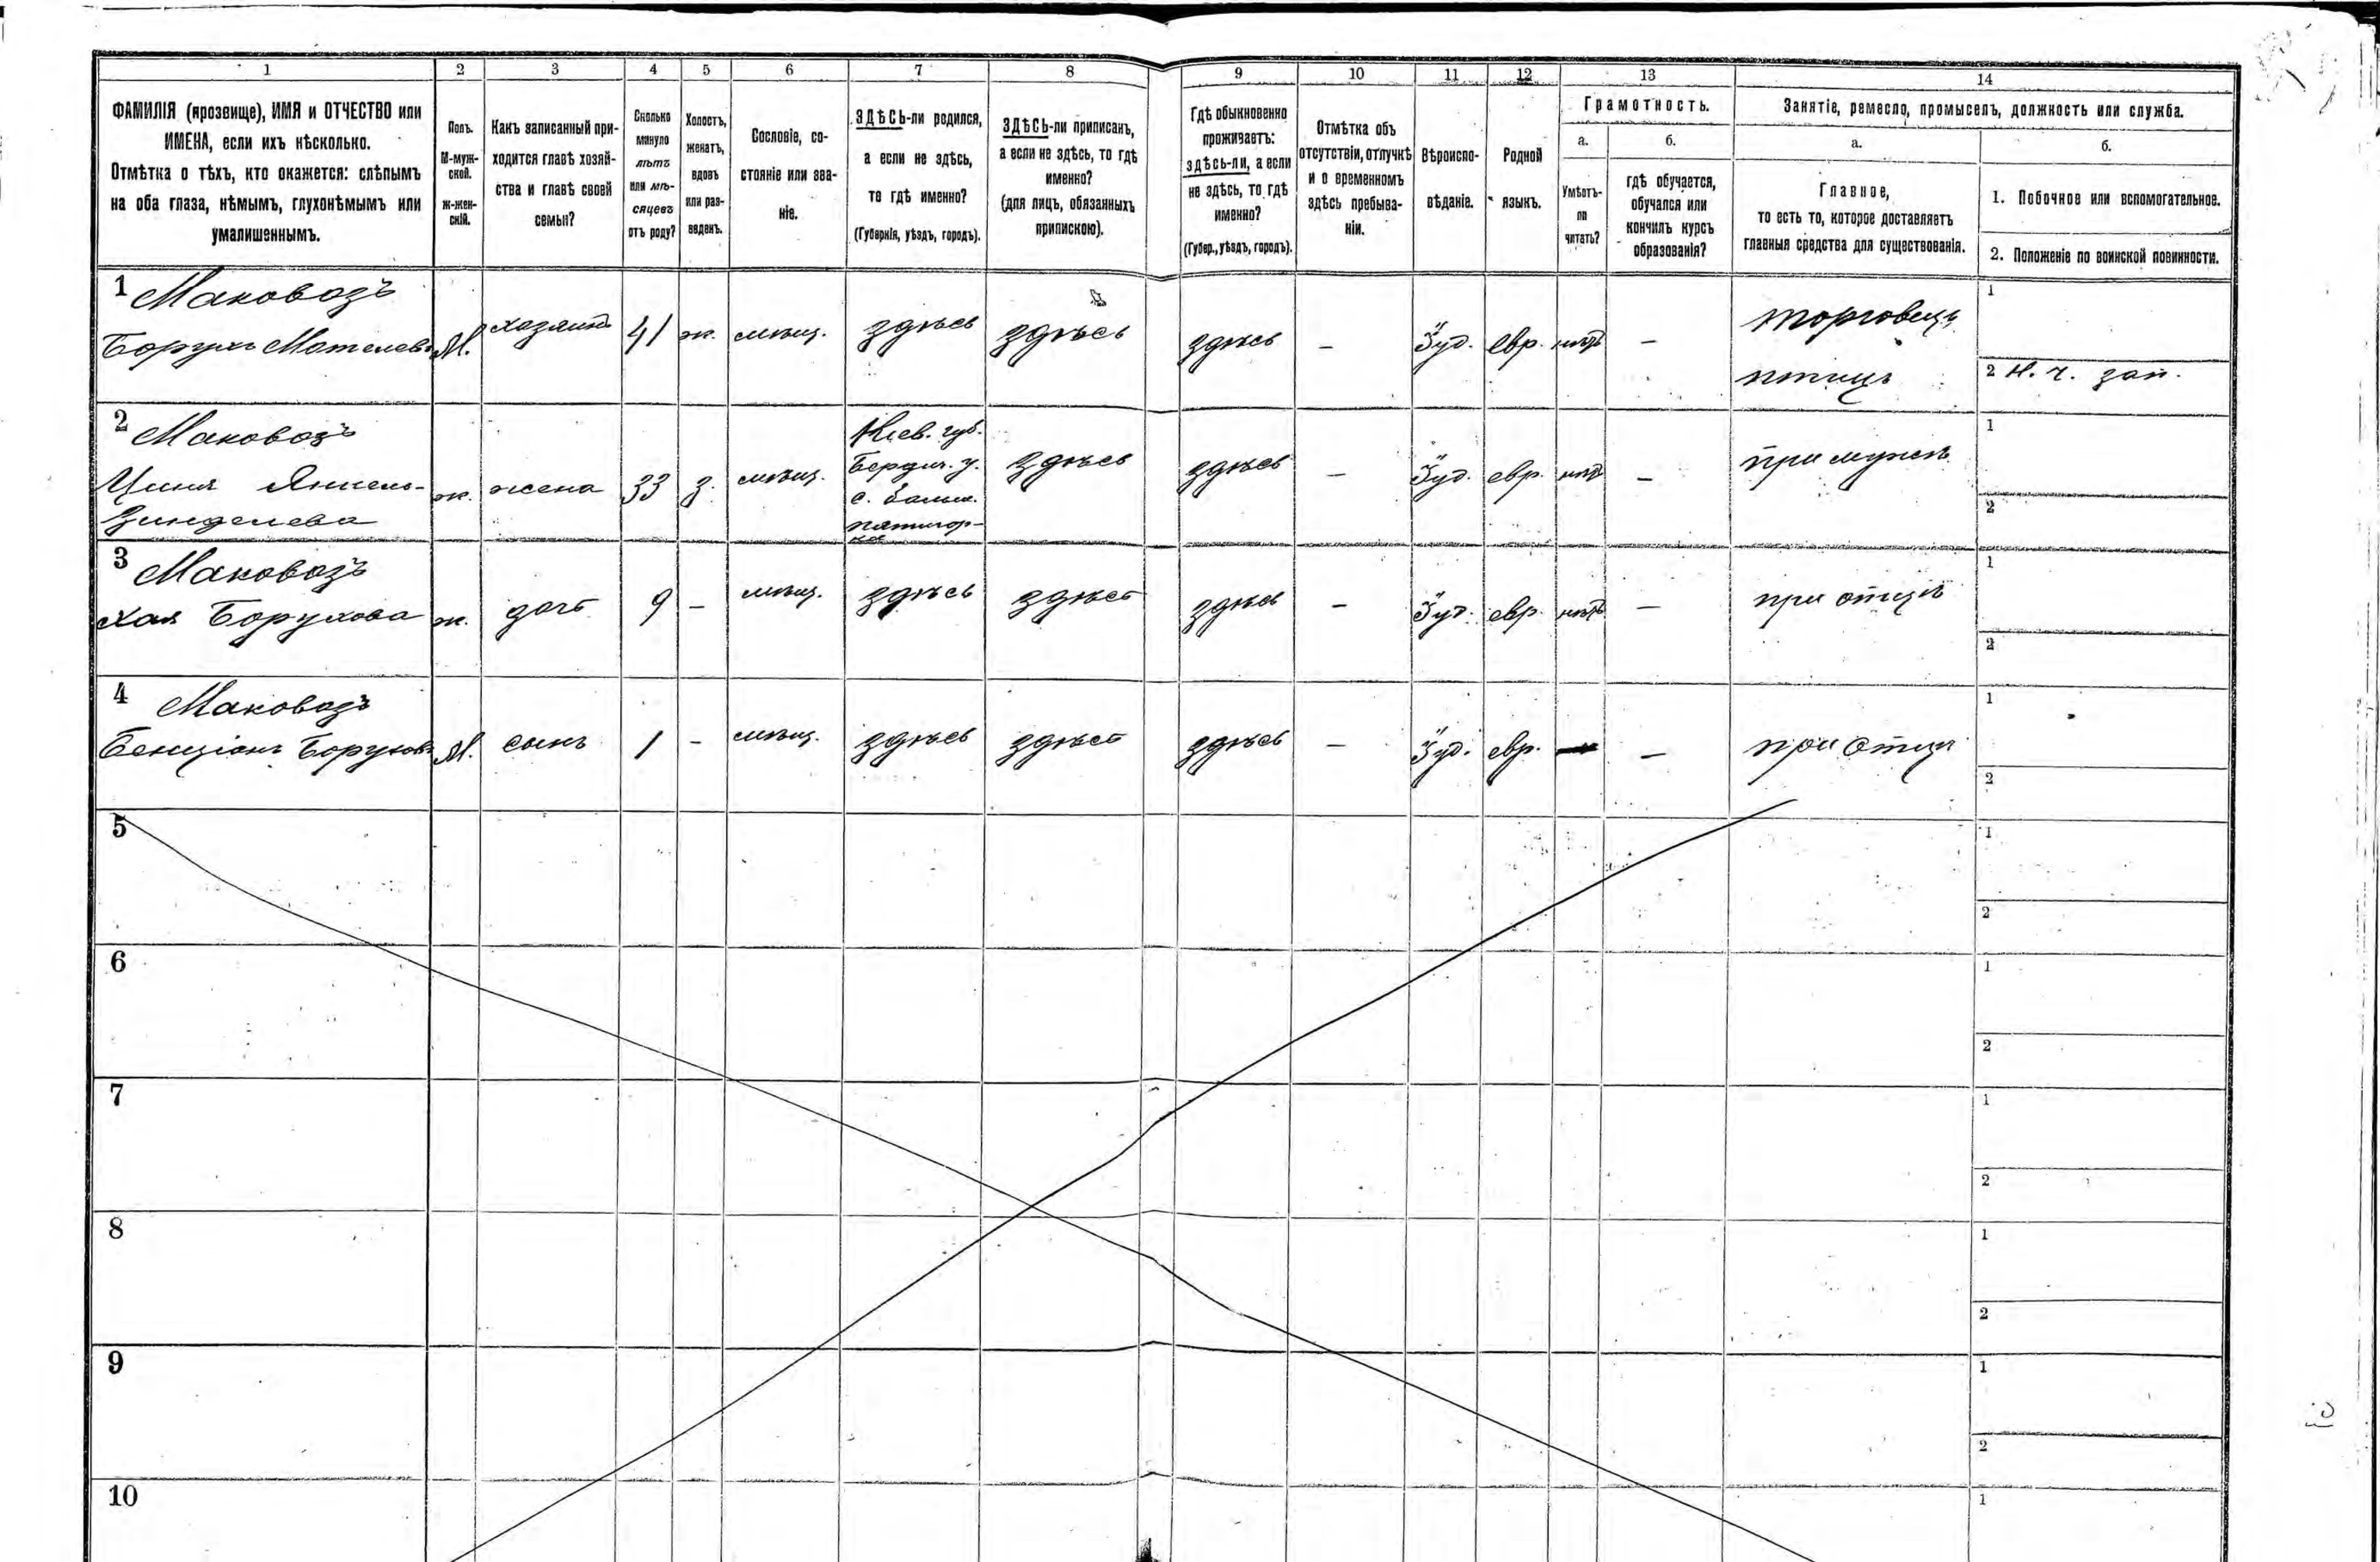 1 2 3 4 5 6 7 8 9 10 11 12 13 14
ФАМИЛІЯ (прозвище), ИМЯ и ОТЧЕСТВО или
ИМЕНА, если ихъ нѣсколько.
Отмѣтка о тѣхъ, кто окажется: слѣпымъ
на оба глаза, нѣмымъ, глухонѣмымъ или
умалишеннымъ.
Полъ.
М-муж-
ской.
ж-жен-
скій.
Какъ записанный при-
ходится главѣ хозяй-
ства и главѣ своей
семьи?
Сколько
минуло
лѣтъ
или мѣ-
сяцевъ
отъ роду?
Холостъ,
женатъ,
вдовъ
или раз-
веденъ.
Сословіе, со-
стояніе или зва-
ніе.
ЗДѢСЬ-ли родился,
а если не здѣсь,
то гдѣ именно?
(Губернія, уѣздъ, городъ).
ЗДѢСЬ-ли приписанъ,
а если не здѣсь, то гдѣ
именно?
(для лицъ, обязанныхъ
припискою).
Гдѣ обыкновенно
проживаетъ:
здѣсь-ли, а если
не здѣсь, то гдѣ
именно?
(Губер., уѣздъ, городъ).
Отмѣтка объ
отсутствіи, отлучкѣ
и о временномъ
здѣсь пребыва-
ніи.
Вѣроиспо-
вѣданіе.
Родной
языкъ.
Грамотность.
а.
Умѣетъ-
ли
читать?
б.
гдѣ обучается,
обучался или
кончилъ курсъ
образованія?
Занятіе, ремесло, промыселъ, должность или служба.
а.
Главное,
то есть то, которое доставляетъ
главныя средства для существованія.
б.
1. Побочное или вспомогательное.
2. Положеніе по воинской повинности.
1 Маковозъ
Борухъ Мотелевъ М. хозяинъ 41 ж. мѣщ. здѣсь здѣсь здѣсь – Іуд. евр. нѣтъ – торговецъ
птицъ
1
2 н. ч. зап.
2 Маковозъ
Янкель-
Зинделева ж. жена 33 з. мѣщ.
Кіев. губ.
Бердич. у.
с. Больш.
здѣсь здѣсь – Іуд. евр. нѣтъ – при мужѣ
1
2
3 Маковозъ
Хая Борухова ж. дочь 9 – мѣщ. здѣсь здѣсь здѣсь – Іуд. евр. нѣтъ – при отцѣ
1
2
4 Маковозъ
Бенціонъ Борухов. М. сынъ 1 – мѣщ. здѣсь здѣсь здѣсь – Іуд. евр. – при отцѣ
1
2
5
1
2
6
1
2
7
1
2
8
1
2
9
1
2
10
1